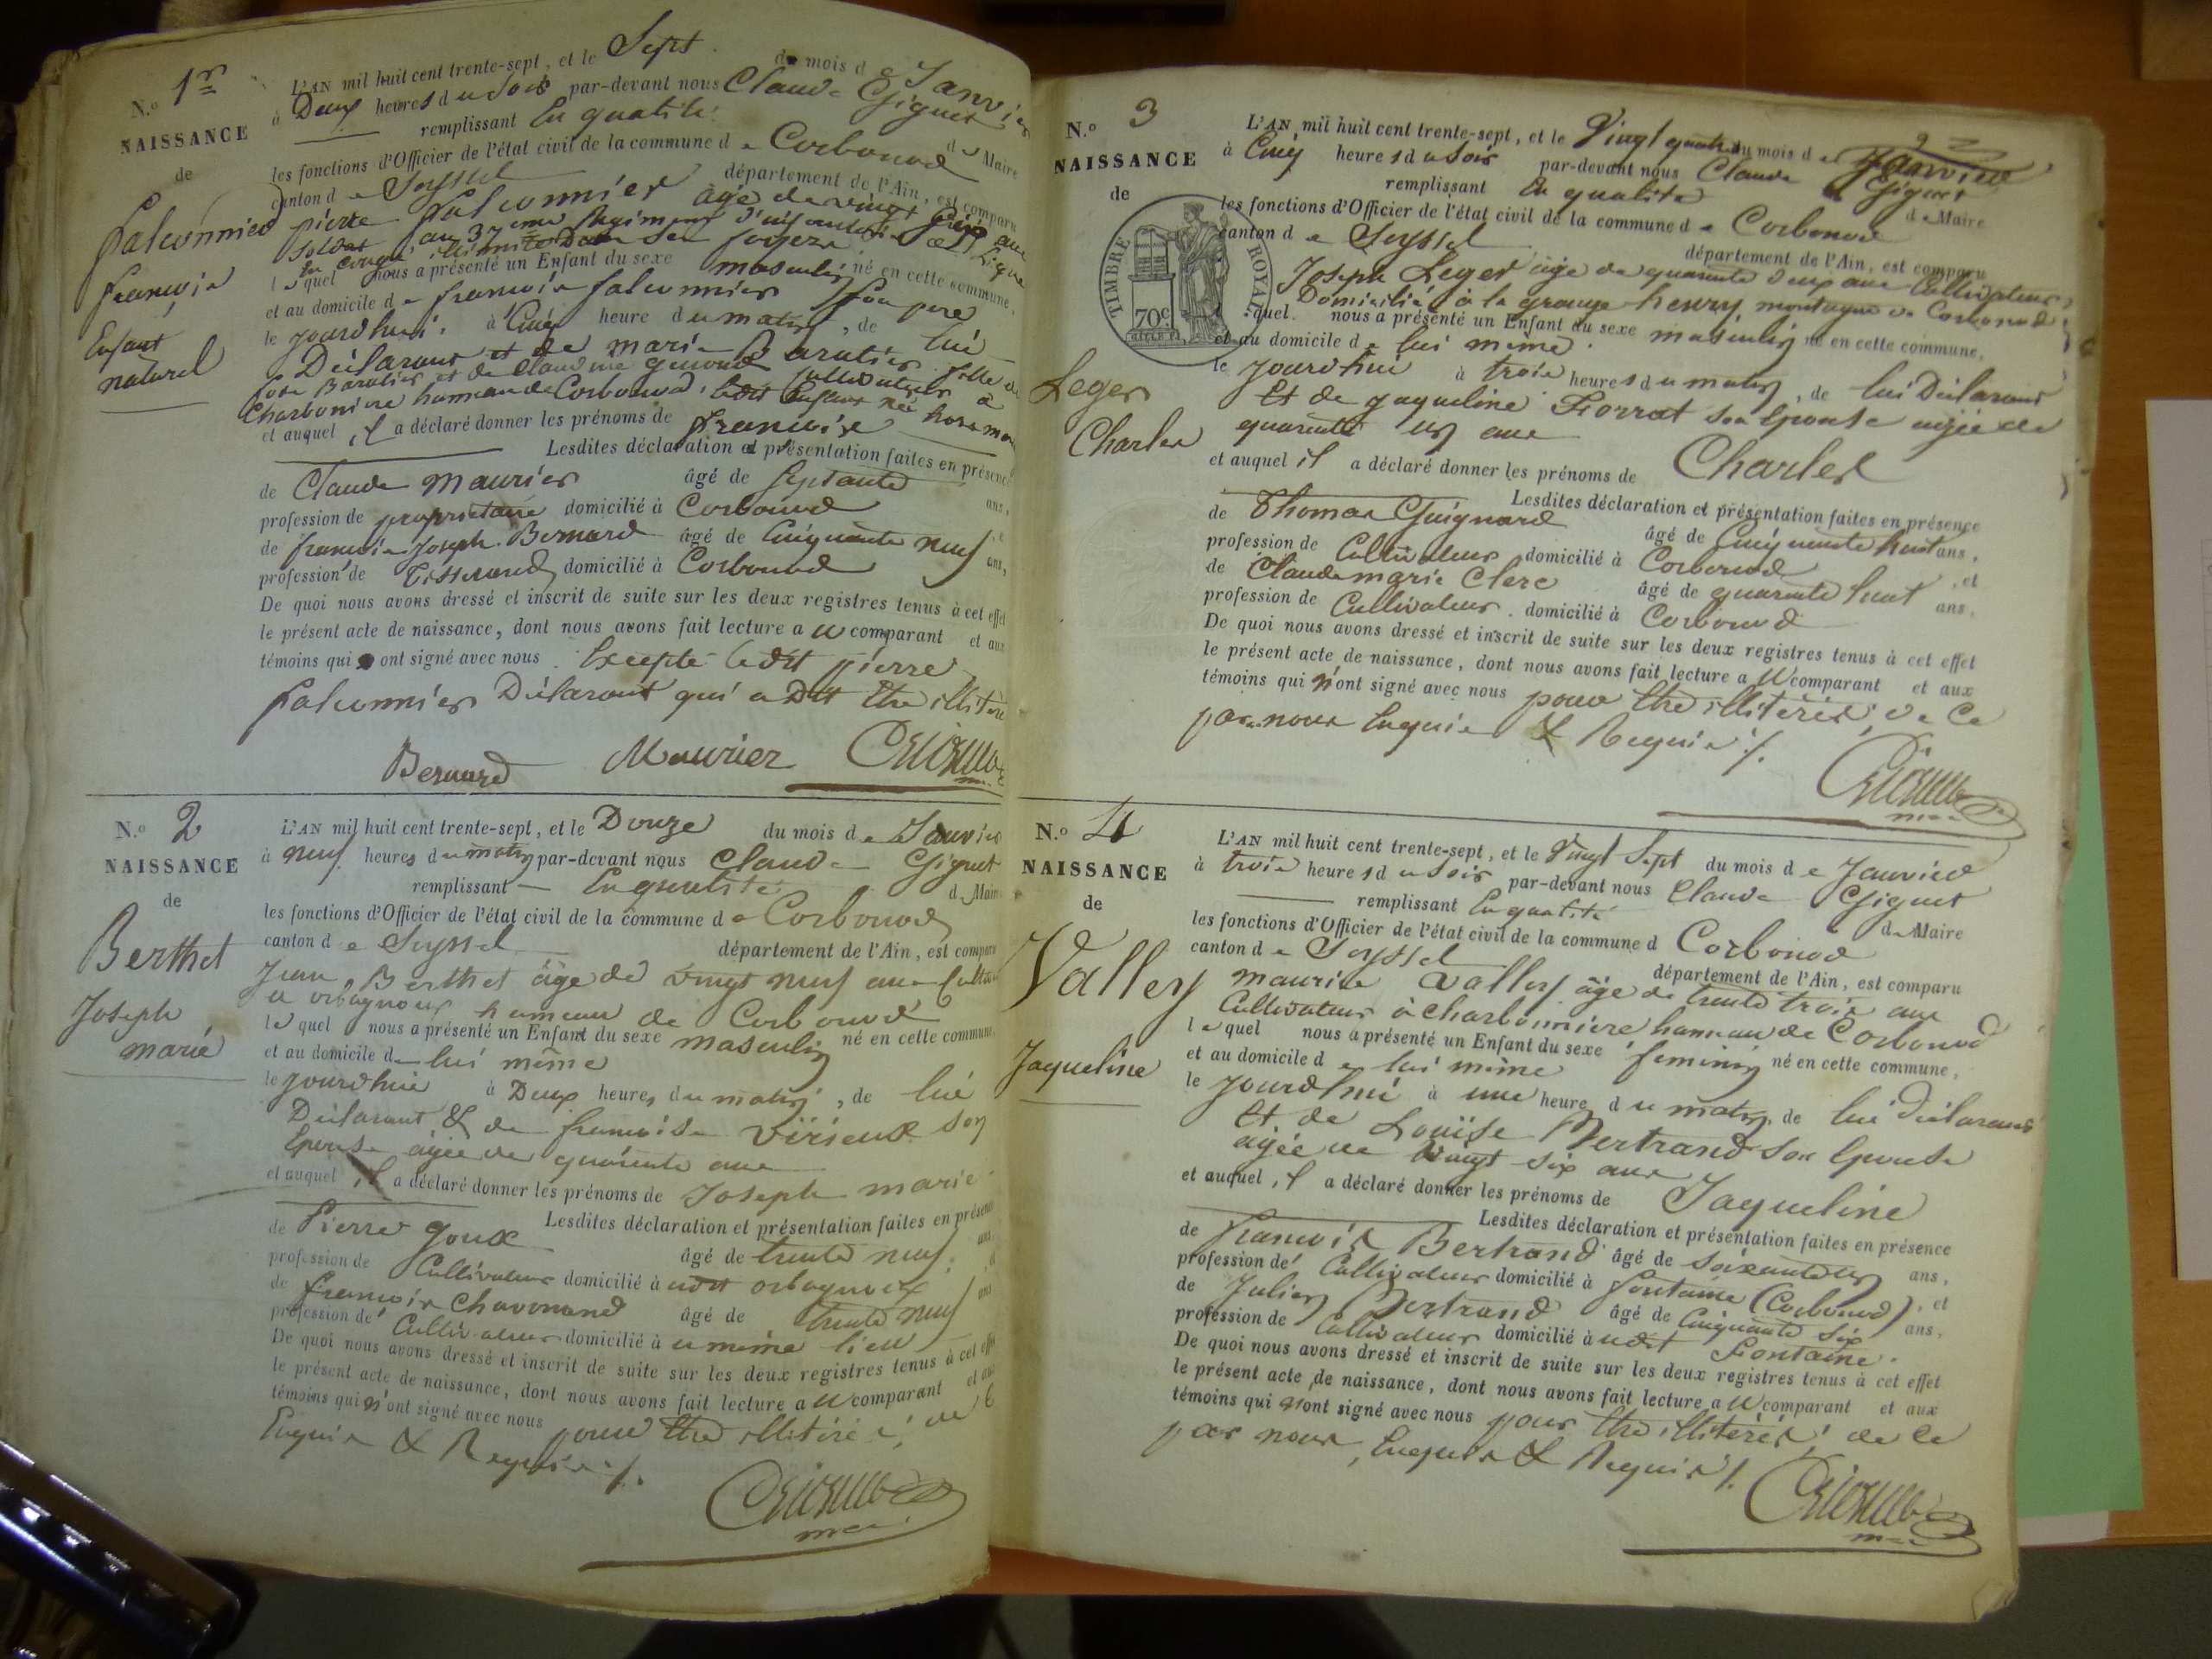 N.o 1er
NAISSANCE
de
falconnier
francois
Enfant
naturel
L'AN mil huit cent trente-sept, et le Sept du mois de Janvier
à Deux heures du Soir par-devant nous Claude Giguet
remplissant En qualité de Maire
les fonctions d'Officier de l'état civil de la commune de Corbonod
canton de Seyssel département de l'Ain, est comparu
pierre falconnier âgé de vingt ans
Soldat au 37eme Regiment d'infanterie de Ligne
En Congé illimité Dans Ses foyers
lequel nous a présenté un Enfant du sexe masculin né en cette commune,
et au domicile de francois falconnier Son pere
le jourdhui à Cinq heure du matin, de lui
Déclarant et de marie Baratier fille de
Baratier et de Claudine Cultivateurs à
Charboniere hameau de Corbonod, ledit Enfant né hors
et auquel il a déclaré donner les prénoms de francois
Lesdites déclaration et présentation faites en présence
de Claude maurier âgé de Septante ans,
profession de propriétaire domicilié à Corbonod
de francois Joseph Bernard âgé de Cinquante neuf ans,
profession de Tisserand domicilié à Corbonod
De quoi nous avons dressé et inscrit de suite sur les deux registres tenus à cet effet
le présent acte de naissance, dont nous avons fait lecture au comparant et aux
témoins qui ont signé avec nous Excepté ledit pierre
falconnier Déclarant qui a Dit Etre illitéré
Bernard Maurier
N.o 2
NAISSANCE
de
Berthet
Joseph
marie
L'AN mil huit cent trente-sept, et le Douze du mois de Janvier
à neuf heures du matin par-devant nous Claude Giguet
remplissant En qualité de Maire
les fonctions d'Officier de l'état civil de la commune de Corbonod
canton de Seyssel département de l'Ain, est comparu
Jean Berthet âgé de vingt neuf ans
a orbagnoux hameau de Corbonod
lequel nous a présenté un Enfant du sexe masculin né en cette commune
et au domicile de lui même
le jourdhui à Deux heures du matin, de lui
Déclarant & de francoise Virieux Son
Epouse agée de quarente ans
et auquel il a déclaré donner les prénoms de Joseph marie
Lesdites déclaration et présentation faites en présence
de Pierre Goux âgé de trente neuf ans
profession de Cultivateur domicilié à udit orbagnoux
de francois Chavonand âgé de trente neuf ans
profession de Cultivateur domicilié à u même lieu
De quoi nous avons dressé et inscrit de suite sur les deux registres tenus à cet effet
le présent acte de naissance, dont nous avons fait lecture au comparant et aux
témoins qui n'ont signé avec nous pour Etre illitéré, de
Enquis & Requis ./.
N.o 3
NAISSANCE
de
TIMBRE ROYAL
70c
Leger
Charles
L'AN mil huit cent trente-sept, et le Vingt quatre du mois de Janvier
à Cinq heures du Soir par-devant nous Claude Giguet
remplissant En qualité de Maire
les fonctions d'Officier de l'état civil de la commune de Corbonod
canton de Seyssel département de l'Ain, est comparu
Joseph Leger âgé de quarante Deux ans Cultivateur,
Domicilié à la grange henry, montagne de Corbonod
lequel nous a présenté un Enfant du sexe masculin né en cette commune,
et au domicile de lui même
le jourdhui à trois heures du matin, de lui Déclarant
Et de jaqueline Son Epouse agée de
quarante un ans
et auquel il a déclaré donner les prénoms de Charles
Lesdites déclaration et présentation faites en présence
de Thomas Guignard âgé de Cinquante huit ans,
profession de Cultivateur domicilié à Corbonod, et
de Claude marie Clerc âgé de quarente huit ans.
profession de Cultivateur. domicilié à Corbonod
De quoi nous avons dressé et inscrit de suite sur les deux registres tenus à cet effet
le présent acte de naissance, dont nous avons fait lecture au comparant et aux
témoins qui n'ont signé avec nous pour Etre illitérés, de Ce
par nous Enquis & Requis ./.
N.o 4
NAISSANCE
de
Vallery
Jaqueline
L'AN mil huit cent trente-sept, et le Vingt Sept du mois de Janvier
à trois heures du Soir par-devant nous Claude Giguet
remplissant En qualité de Maire
les fonctions d'Officier de l'état civil de la commune d Corbonod
canton de Seyssel département de l'Ain, est comparu
maurice vallery âgé de trente trois ans
Cultivateur à charbonniere hameau de Corbonod
lequel nous a présenté un Enfant du sexe feminin né en cette commune,
et au domicile de lui même
le jourdhui à une heure du matin, de lui déclarant
Et de Louise Bertrand Son Epouse
agée de Vingt six ans
et auquel il a déclaré donner les prénoms de Jaqueline
Lesdites déclaration et présentation faites en présence
de francois Bertrand âgé de soixante un ans,
profession de Cultivateur domicilié à fontaine (Corbonod), et
de Julien Bertrand âgé de Cinquante Six ans,
profession de Cultivateur domicilié à udit Fontaine.
De quoi nous avons dressé et inscrit de suite sur les deux registres tenus à cet effet
le présent acte de naissance, dont nous avons fait lecture au comparant et aux
témoins qui n'ont signé avec nous pour Etre illitérés, de Ce
par nous, Enquis & Requis ./.